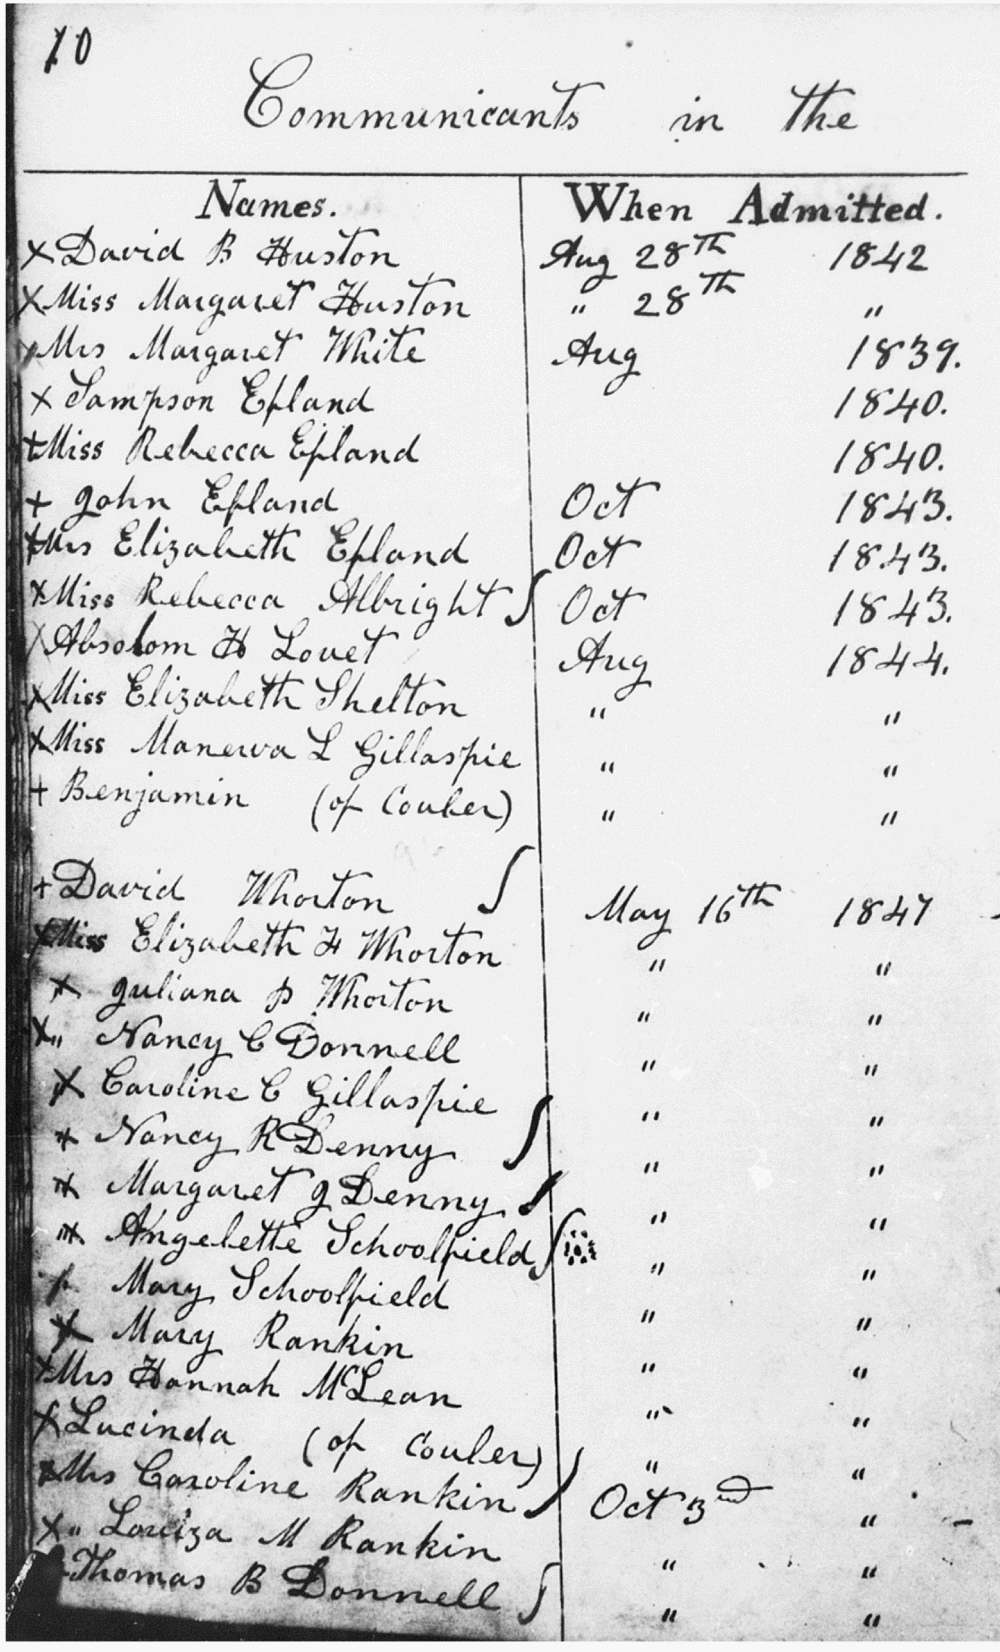 10
Communicants in the
Names. When Admitted.
X David B Huston Aug 28th 1842
X Miss Margaret Huston " 28th "
x Mrs Margaret White Aug 1839.
x Sampson Efland 1840.
+ Miss Rebecca Efland 1840.
+ John Efland Oct 1843.
+ Mrs Elizabeth Efland Oct 1843.
x Miss Rebecca Albright Oct 1843.
X Absolom H Lovet Aug 1844.
x Miss Elizabeth Shelton " "
x Miss Manerva L Gillaspie " "
+ Benjamin (of Couber) " "
+ David Whorton May 16th 1847
x Miss Elizabeth H Whorton " "
x Juliana P Whorton " "
x " Nancy C Donnell " "
x Caroline C Gillaspie " "
x Nancy R Denny " "
x Margaret J Denny " "
x Angelette Schoolfield " "
Mary Schoolfield " "
x Mary Rankin " "
x Mrs Hannah McLean " "
x Lucinda (of Couber) " "
x Mrs Caroline Rankin Oct 3nd "
x " Louiza M Rankin " "
Thomas B Donnell " "